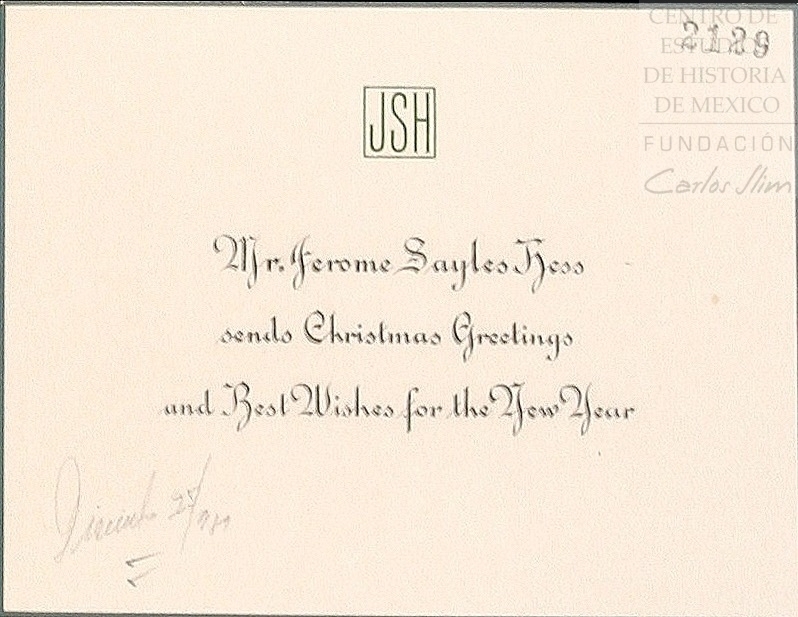 CENTRO DE
ESTUDIOS
DE HISTORIA
DE MEXICO
FUNDACIÓN
Carlos Slim
JSH
Mr. Jerome Sayles Hess
sends Christmas Greetings
and Best Wishes for the New Year